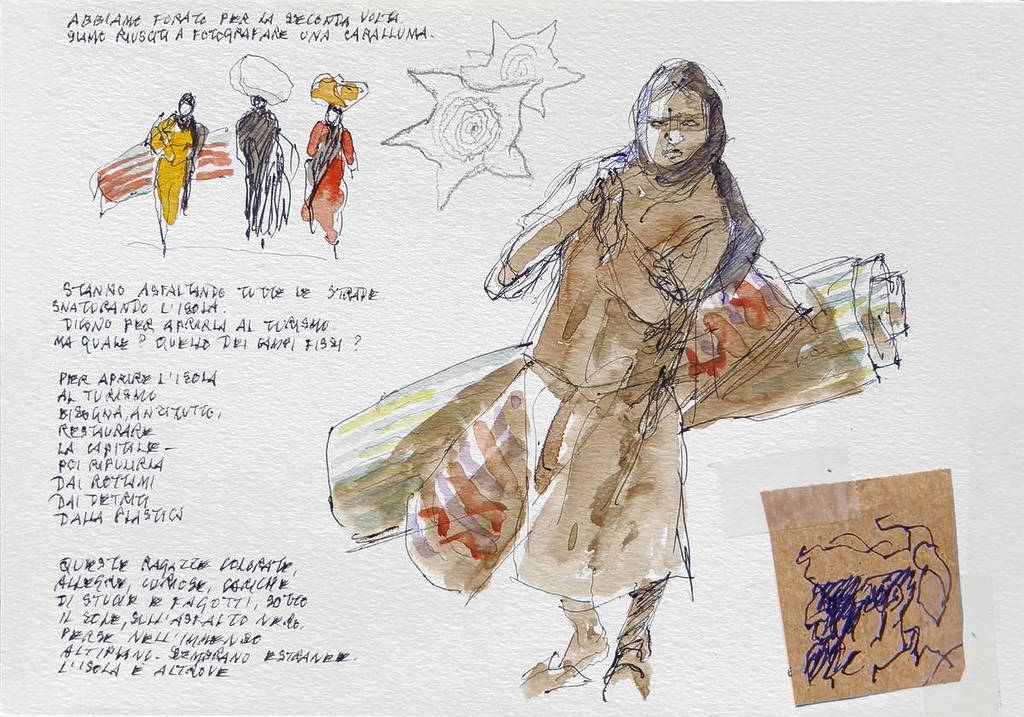 ABBIAMO FORATO PER LA SECONDA VOLTA.
SIAMO RIUSCITI A FOTOGRAFARE UNA CARALLUMA.
STANNO ASFALTANDO TUTTE LE STRADE
SNATURANDO L'ISOLA.
DICONO PER APRIRLA AL TURISMO
MA QUALE? QUELLO DEI CAMPI FISSI?
PER APRIRE L'ISOLA
AL TURISMO
BISOGNA, ANZITUTTO,
RESTAURARE
LA CAPITALE -
POI RIPULIRLA
DAI ROTTAMI
DAI DETRITI
DALLA PLASTICA
QUESTE RAGAZZE COLORATE,
ALLEGRE, CURIOSE, CARICHE
DI STUOIE E FAGOTTI, SOTTO
IL SOLE, SULL'ASFALTO NERO,
PERSE NELL'IMMENSO
ALTIPIANO - SEMBRANO ESTRANEE.
L'ISOLA E ALTROVE